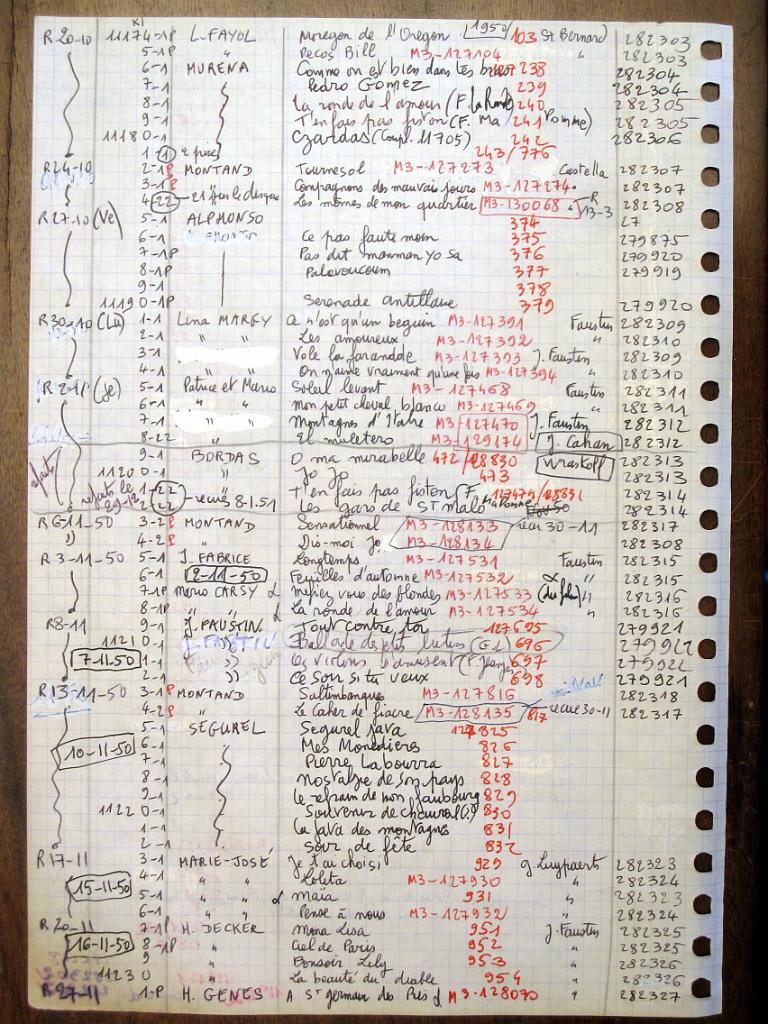 R 20-10 11174-1P L. FAYOL Moregon de l'Oregon 1950 103 St Bernard 282303
5-1P " Pecos Bill M3-127104 " 282303
6-1 MURENA Comme on est bien dans tes bras 127238 282304
7-1 Pedro Gomez 239 282304
8-1 La ronde de l'amour (F. la Ronde) 240 282305
9-1 T'en fais pas fiston (F. Ma Pomme) 241 282305
11180-1 Czardas (Coupl. 11705) 242 282306
1-1 2 pies 243/776
R 24-10 2-1P MONTAND Tournesol M3-127273 Castella 282307
3-1P Compagnons des mauvais jours M3-127274 " 282307
4-22 Les mômes de mon quartier M3-130068 R 13-3 282308
R 27-10 (Ve) 5-1 ALPHONSO 374 27
6-1 Ce pas faute moin 375 279875
7-1P Pas dit manman yo sa 376 279920
8-1P Palavoucoum 377 279919
9-1 378
11190-1P Serenade antillaise 379 279920
R 30-10 (Lu) 1-1 Lina MARGY Ce n'est qu'un beguin M3-127391 Faustin 282309
2-1 " " Les amoureux M3-127392 " 282310
3-1 Vole la farandole M3-127393 J. Faustin 282309
4-1 On n'aime vraiment qu'une fois M3-127394 " 282310
R 2-11 (Je) 5-1 Patrice et Mario Soleil levant M3-127468 Faustin 282311
6-1 " " Mon petit cheval blanc M3-127469 " 282311
7-1 " " Montagnes d'Italie M3-127470 J. Faustin 282312
8-22 El muletero M3-129174 J. Cahan 282312
9-1 BORDAS O ma mirabelle 472/128830 Wraskoff 282313
11200-1 " Jo Jo 473 282313
refaits le 29-12 1-22 " T'en fais pas fiston (F. Ma Pomme) 127474/128831 282314
2-22 recues 8-1.51 Les gars de St Malo 282314
R 6-11-50 3-2P MONTAND Sensationnel M3-128133 recu 30-11 282317
4-2P " Dis-moi Jo M3-128134 282308
R 3-11-50 5-1 J. FABRICE Longtemps M3-127531 Faustin 282315
6-1 2-11-50 Feuilles d'automne M3-127532 " 282315
7-1P Mario CARSY Mefiez vous des blondes M3-127533 (du film) " 282316
8-1P " La ronde de l'amour M3-127534 " 282316
R 8-11 9-1 J. FAUSTIN Tout contre toi 127695 279921
11210-1 " Ballade des petits lutins 696 279922
7-11-50 1-1 " 697 279922
2-1 " Ce soir si tu veux 698 279921
R 13-11-50 3-1P MONTAND Saltimbanques M3-127816 282318
4-2P " Le Cocher de fiacre M3-128135 817 recue 30-11 282317
5-1 SEGUREL Segurel Java 127825
10-11-50 6-1 Mes Monedieres 826
7-1 Pierre Labourra 827
8-1 Nostalgie de son pays 828
9-1 Le refrain de mon faubourg 829
11220-1 830
1-1 La Java des montagnes 831
2-1 Soir de fête 832
R 17-11 3-1 MARIE-JOSÉ Je t'ai choisi 929 G. Luypaerts 282323
15-11-50 4-1 " " Lolita M3-127930 " 282324
5-1 " " Maïa 931 " 282323
6-1 " " Pense à nous M3-127932 " 282324
R 20-11 7-1P H. DECKER Mona Lisa 951 J. Faustin 282325
16-11-50 8-1P " Ciel de Paris 952 " 282325
9 " Bonsoir Lily 953 " 282326
11230 " La beauté du diable 954 " 282326
R 27-11 1-P H. GENES A St germain des Prés M3-128070 " 282327